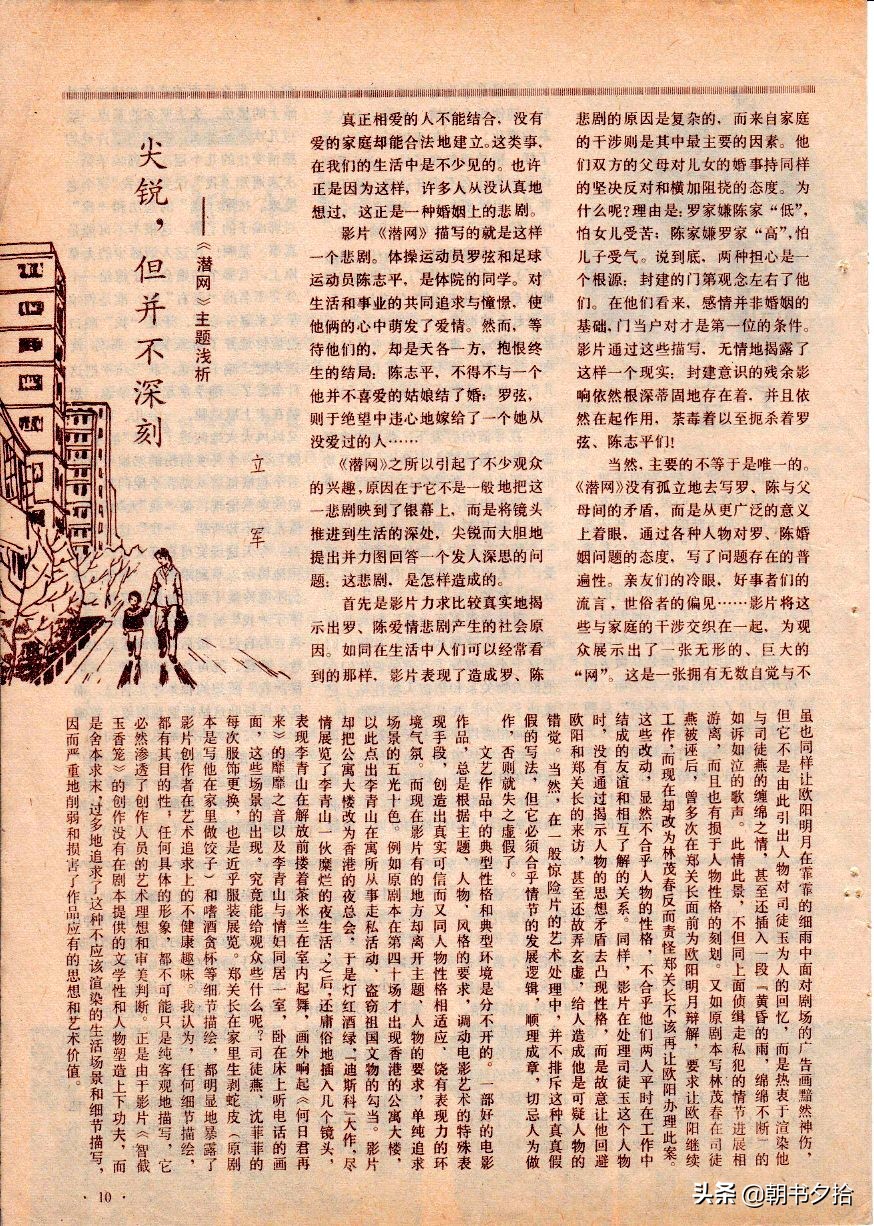 尖锐，但并不深刻
——《潜网》主题浅析
立军
真正相爱的人不能结合，没有
爱的家庭却能合法地建立。这类事，
在我们的生活中是不少见的。也许
正是因为这样，许多人从没认真地
想过，这正是一种婚姻上的悲剧。
影片《潜网》描写的就是这样
一个悲剧。体操运动员罗弦和足球
运动员陈志平，是体院的同学。对
生活和事业的共同追求与憧憬，使
他俩的心中萌发了爱情。然而，等
待他们的，却是天各一方，抱恨终
生的结局：陈志平，不得不与一个
他并不喜爱的姑娘结了婚；罗弦，
则于绝望中违心地嫁给了一个她从
没爱过的人……
《潜网》之所以引起了不少观众
的兴趣，原因在于它不是一般地把这
一悲剧映到了银幕上，而是将镜头
推进到生活的深处，尖锐而大胆地
提出并力图回答一个发人深思的问
题：这悲剧，是怎样造成的。
首先是影片力求比较真实地揭
示出罗、陈爱情悲剧产生的社会原
因。如同在生活中人们可以经常看
到的那样，影片表现了造成罗、陈
悲剧的原因是复杂的，而来自家庭
的干涉则是其中最主要的因素。他
们双方的父母对儿女的婚事持同样
的坚决反对和横加阻挠的态度。为
什么呢？理由是：罗家嫌陈家“低”，
怕女儿受苦；陈家嫌罗家“高”，怕
儿子受气。说到底，两种担心是一
个根源：封建的门第观念左右了他
们。在他们看来，感情并非婚姻的
基础，门当户对才是第一位的条件。
影片通过这些描写，无情地揭露了
这样一个现实，封建意识的残余影
响依然根深蒂固地存在着，并且依
然在起作用，荼毒着以至扼杀着罗
弦、陈志平们！
当然，主要的不等于是唯一的。
《潜网》没有孤立地去写罗、陈与父
母间的矛盾，而是从更广泛的意义
上着眼，通过各种人物对罗、陈婚
姻问题的态度，写了问题存在的普
遍性。亲友们的冷眼，好事者们的
流言，世俗者的偏见……影片将这
些与家庭的干涉交织在一起，为观
众展示出了一张无形的、巨大的
“网”。这是一张拥有无数自觉与不
虽也同样让欧阳明月在霏霏的细雨中面对剧场的广告画黯然神伤，
但它不是由此引出人物对司徒玉为人的回忆，而是热衷于渲染他
与司徒燕的缠绵之情，甚至还插入一段『黄昏的雨，绵绵不断』的
如诉如泣的歌声。此情此景，不但同上面侦缉走私犯的情节进展相
游离，而且也有损于人物性格的刻划。又如原剧本写林茂春在司徒
燕被诬后，曾多次在郑关长面前为欧阳明月辩解，要求让欧阳继续
工作，而现在却改为林茂春反而责怪郑关长不该再让欧阳办理此案。
这些改动，显然不合乎人物的性格，不合乎他们两人平时在工作中
结成的友谊和相互了解的关系。同样，影片在处理司徒玉这个人物
时，没有通过揭示人物的思想矛盾去凸现性格，而是故意让他回避
欧阳和郑关长的来访，甚至还故弄玄虚，给人造成他是可疑人物的
错觉。当然，在一般惊险片的艺术处理中，并不排斥这种真真假
假的写法，但它必须合乎情节的发展逻辑，顺理成章，切忌人为做
作，否则就失之虚假了。
文艺作品中的典型性格和典型环境是分不开的。一部好的电影
作品，总是根据主题、人物、风格的要求，调动电影艺术的特殊表
现手段，创造出真实可信而又同人物性格相适应、饶有表现力的环
境气氛。而现在影片有的地方却离开主题、人物的要求，单纯追求
场景的五光十色。例如原剧本在第四十场才出现香港的公寓大楼，
以此点出李青山在寓所从事走私活动、盗窃祖国文物的勾当。影片
却把公寓大楼改为香港的夜总会，于是灯红酒绿，迪斯科大作，尽
情展览了李青山一伙糜烂的夜生活；之后，还庸俗地插入几个镜头，
表现李青山在解放前搂着茶米兰在室内起舞，画外响起《何日君再
来》的靡靡之音以及李青山与情妇同居一室，卧在床上听电话的画
面，这些场景的出现，究竟能给观众些什么呢？司徒燕、沈菲菲的
每次服饰更换，也是近乎服装展览。郑关长在家里生剥蛇皮（原剧
本是写他在家里做饺子）和嗜酒贪杯等细节描绘，都明显地暴露了
影片创作者在艺术追求上的不健康趣味。我认为，任何细节描绘，
都有其目的性，任何具体的形象，都不可能只是纯客观地描写，它
必然渗透了创作人员的艺术理想和审美判断。正是由于影片《智截
玉香笼》的创作没有在剧本提供的文学性和人物塑造上下功夫，而
是舍本求末，过多地追求了这种不应该渲染的生活场景和细节描写，
因而严重地削弱和损害了作品应有的思想和艺术价值。
· 10 ·
头条 @朝书夕拾